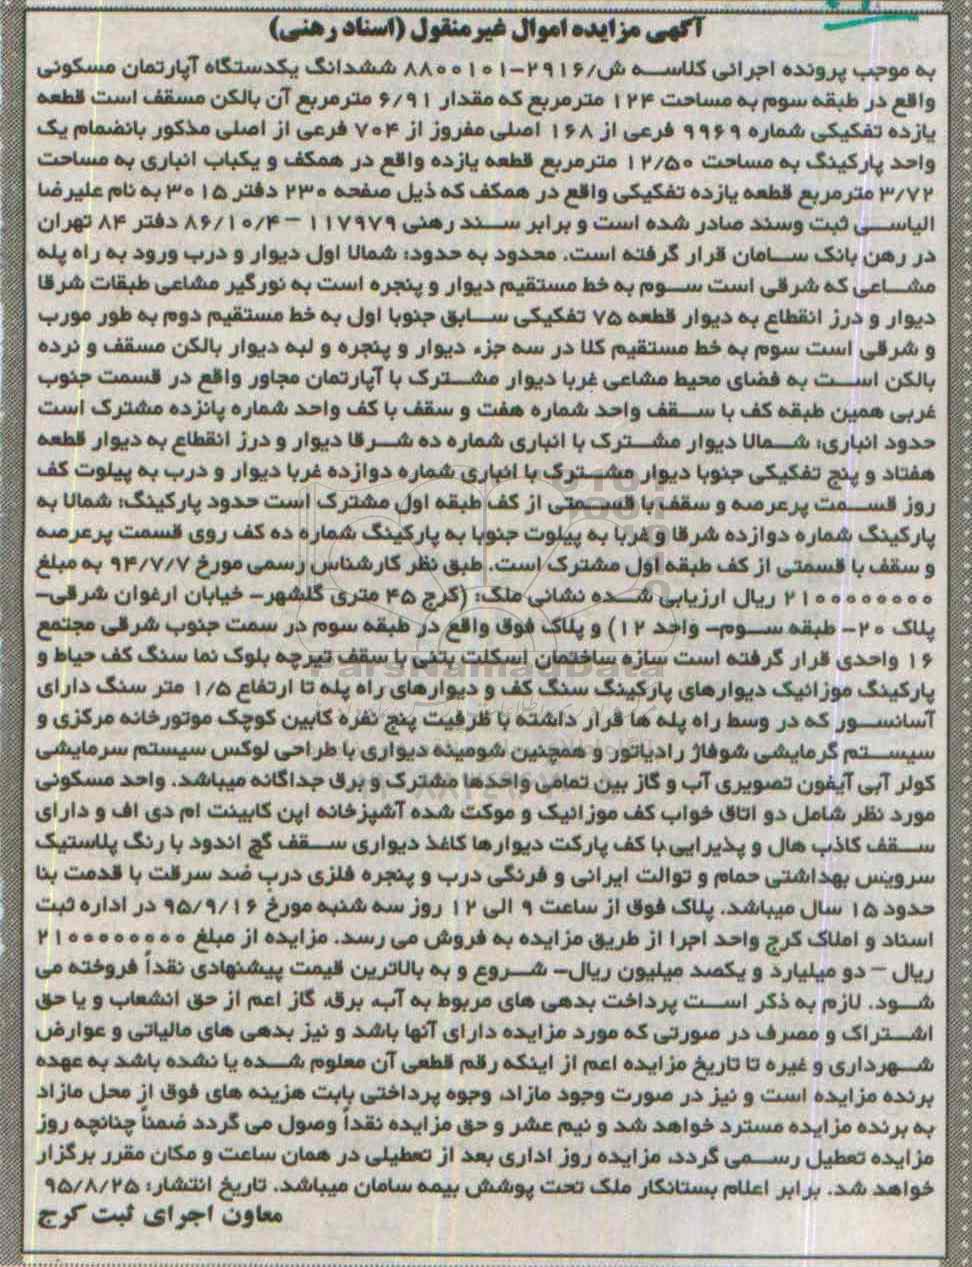 آگهی مزایده اموال غیرمنقول (اسناد رهنی)
به موجب پرونده اجرائی کلاسه ش/۲۹۱۶-۸۸۰۰۱۰۱ ششدانگ یکدستگاه آپارتمان مسکونی
واقع در طبقه سوم به مساحت ۱۲۴ مترمربع که مقدار ۶/۹۱ مترمربع آن بالکن مسقف است قطعه
یازده تفکیکی شماره ۹۹۶۹ فرعی از ۱۶۸ اصلی مفروز از ۷۰۴ فرعی از اصلی مذکور بانضمام یک
واحد پارکینگ به مساحت ۱۲/۵۰ مترمربع قطعه یازده واقع در همکف و یکباب انباری به مساحت
۳/۷۲ مترمربع قطعه یازده تفکیکی واقع در همکف که ذیل صفحه ۲۳۰ دفتر ۳۰۱۵ به نام علیرضا
الیاسی ثبت وسند صادر شده است و برابر سند رهنی ۱۱۷۹۷۹ – ۸۶/۱۰/۴ دفتر ۸۴ تهران
در رهن بانک سامان قرار گرفته است. محدود به حدود: شمالا اول دیوار و درب ورود به راه پله
مشاعی که شرقی است سوم به خط مستقیم دیوار و پنجره است به نورگیر مشاعی طبقات شرقا
دیوار و درز انقطاع به دیوار قطعه ۷۵ تفکیکی سابق جنوبا اول به خط مستقیم دوم به طور مورب
و شرقی است سوم به خط مستقیم کلا در سه جزء دیوار و پنجره و لبه دیوار بالکن مسقف و نرده
بالکن است به فضای محیط مشاعی غربا دیوار مشترک با آپارتمان مجاور واقع در قسمت جنوب
غربی همین طبقه کف با سقف واحد شماره هفت و سقف با کف واحد شماره پانزده مشترک است
حدود انباری: شمالا دیوار مشترک با انباری شماره ده شرقا دیوار و درز انقطاع به دیوار قطعه
هفتاد و پنج تفکیکی جنوبا دیوار مشترک با انباری شماره دوازده غربا دیوار و درب به پیلوت کف
روز قسمت پرعرصه و سقف با قسمتی از کف طبقه اول مشترک است حدود پارکینگ: شمالا به
پارکینگ شماره دوازده شرقا و غربا به پیلوت جنوبا به پارکینگ شماره ده کف روی قسمت پرعرصه
و سقف با قسمتی از کف طبقه اول مشترک است. طبق نظر کارشناس رسمی مورخ ۹۴/۷/۷ به مبلغ
۲۱۰۰۰۰۰۰۰۰ ریال ارزیابی شده نشانی ملک: (کرج ۴۵ متری گلشهر- خیابان ارغوان شرقی-
پلاک ۲۰- طبقه سوم- واحد ۱۲) و پلاک فوق واقع در طبقه سوم در سمت جنوب شرقی مجتمع
۱۶ واحدی قرار گرفته است سازه ساختمان اسکلت بتنی با سقف تیرچه بلوک نما سنگ کف حیاط و
پارکینگ موزائیک دیوارهای پارکینگ سنگ کف و دیوارهای راه پله تا ارتفاع ۱/۵ متر سنگ دارای
آسانسور که در وسط راه پله ها قرار داشته با ظرفیت پنج نفره کابین کوچک موتورخانه مرکزی و
سیستم گرمایشی شوفاژ رادیاتور و همچنین شومینه دیواری با طراحی لوکس سیستم سرمایشی
کولر آبی آیفون تصویری آب و گاز بین تمامی واحدها مشترک و برق جداگانه میباشد. واحد مسکونی
مورد نظر شامل دو اتاق خواب کف موزائیک و موکت شده آشپزخانه اپن کابینت ام دی اف و دارای
سقف کاذب هال و پذیرایی با کف پارکت دیوارها کاغذ دیواری سقف گچ اندود با رنگ پلاستیک
سرویس بهداشتی حمام و توالت ایرانی و فرنگی درب و پنجره فلزی درب ضد سرقت با قدمت بنا
حدود ۱۵ سال میباشد. پلاک فوق از ساعت ۹ الی ۱۲ روز سه شنبه مورخ ۹۵/۹/۱۶ در اداره ثبت
اسناد و املاک کرج واحد اجرا از طریق مزایده به فروش می رسد. مزایده از مبلغ ۲۱۰۰۰۰۰۰۰۰
ریال – دو میلیارد و یکصد میلیون ریال- شروع و به بالاترین قیمت پیشنهادی نقداً فروخته می
شود. لازم به ذکر است پرداخت بدهی های مربوط به آب، برق، گاز اعم از حق انشعاب و یا حق
اشتراک و مصرف در صورتی که مورد مزایده دارای آنها باشد و نیز بدهی های مالیاتی و عوارض
شهرداری و غیره تا تاریخ مزایده اعم از اینکه رقم قطعی آن معلوم شده یا نشده باشد به عهده
برنده مزایده است و نیز در صورت وجود مازاد، وجوه پرداختی بابت هزینه های فوق از محل مازاد
به برنده مزایده مسترد خواهد شد و نیم عشر و حق مزایده نقداً وصول می گردد ضمناً چنانچه روز
مزایده تعطیل رسمی گردد، مزایده روز اداری بعد از تعطیلی در همان ساعت و مکان مقرر برگزار
خواهد شد. برابر اعلام بستانکار ملک تحت پوشش بیمه سامان میباشد. تاریخ انتشار: ۹۵/۸/۲۵
معاون اجرای ثبت کرج
ParsNamadData